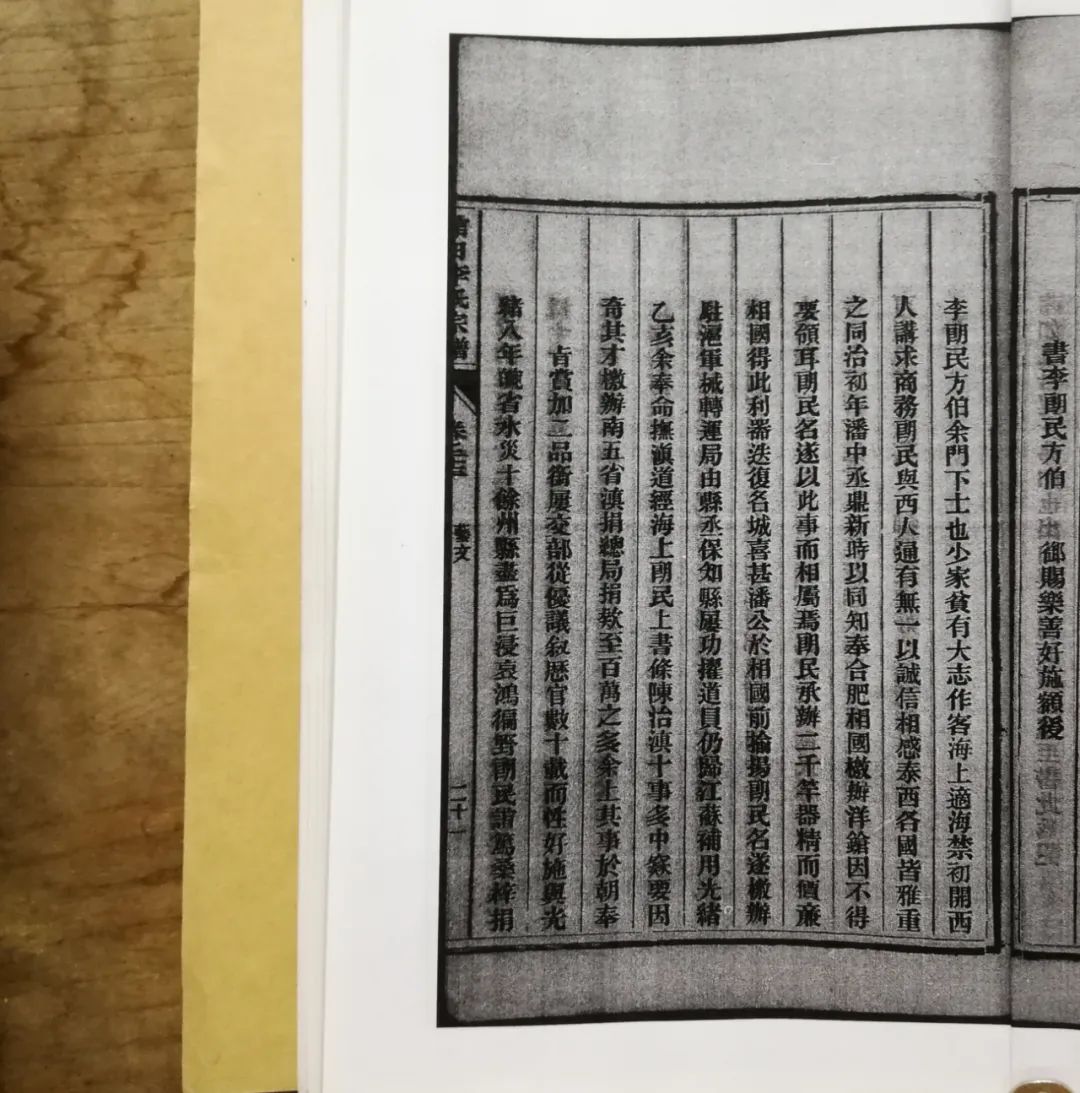 書李朗民方伯 御賜樂善好施額後
李朗民方伯余門下士也少家貧有大志作客海上適海禁初開西
人講求商務朗民與西人通有無一以誠信相感泰西各國皆雅重
之同治初年潘中丞鼎新時以同知奉合肥相國檄辦洋鎗因不得
要領耳朗民名遂以此事而相屬焉朗民承辦二千竿器精而價廉
相國得此利器迭復名城喜甚潘公於相國前揄揚朗民名遂檄辦
駐滬軍械轉運局由縣丞保知縣屢功擢道員仍歸江蘇補用光緒
乙亥余奉命撫滇道經海上朗民上書條陳治滇十事多中窾要因
奇其才檄辦南五省滇捐總局捐欵至百萬之多余上其事於朝奉
旨賞加二品銜屢交部從優議敘歷官數十載而性好施與光
緒八年皖省水災十餘州縣盡為巨浸哀鴻徧野朗民誼篤桑梓捐
田李氏宗譜
藝文
二十一